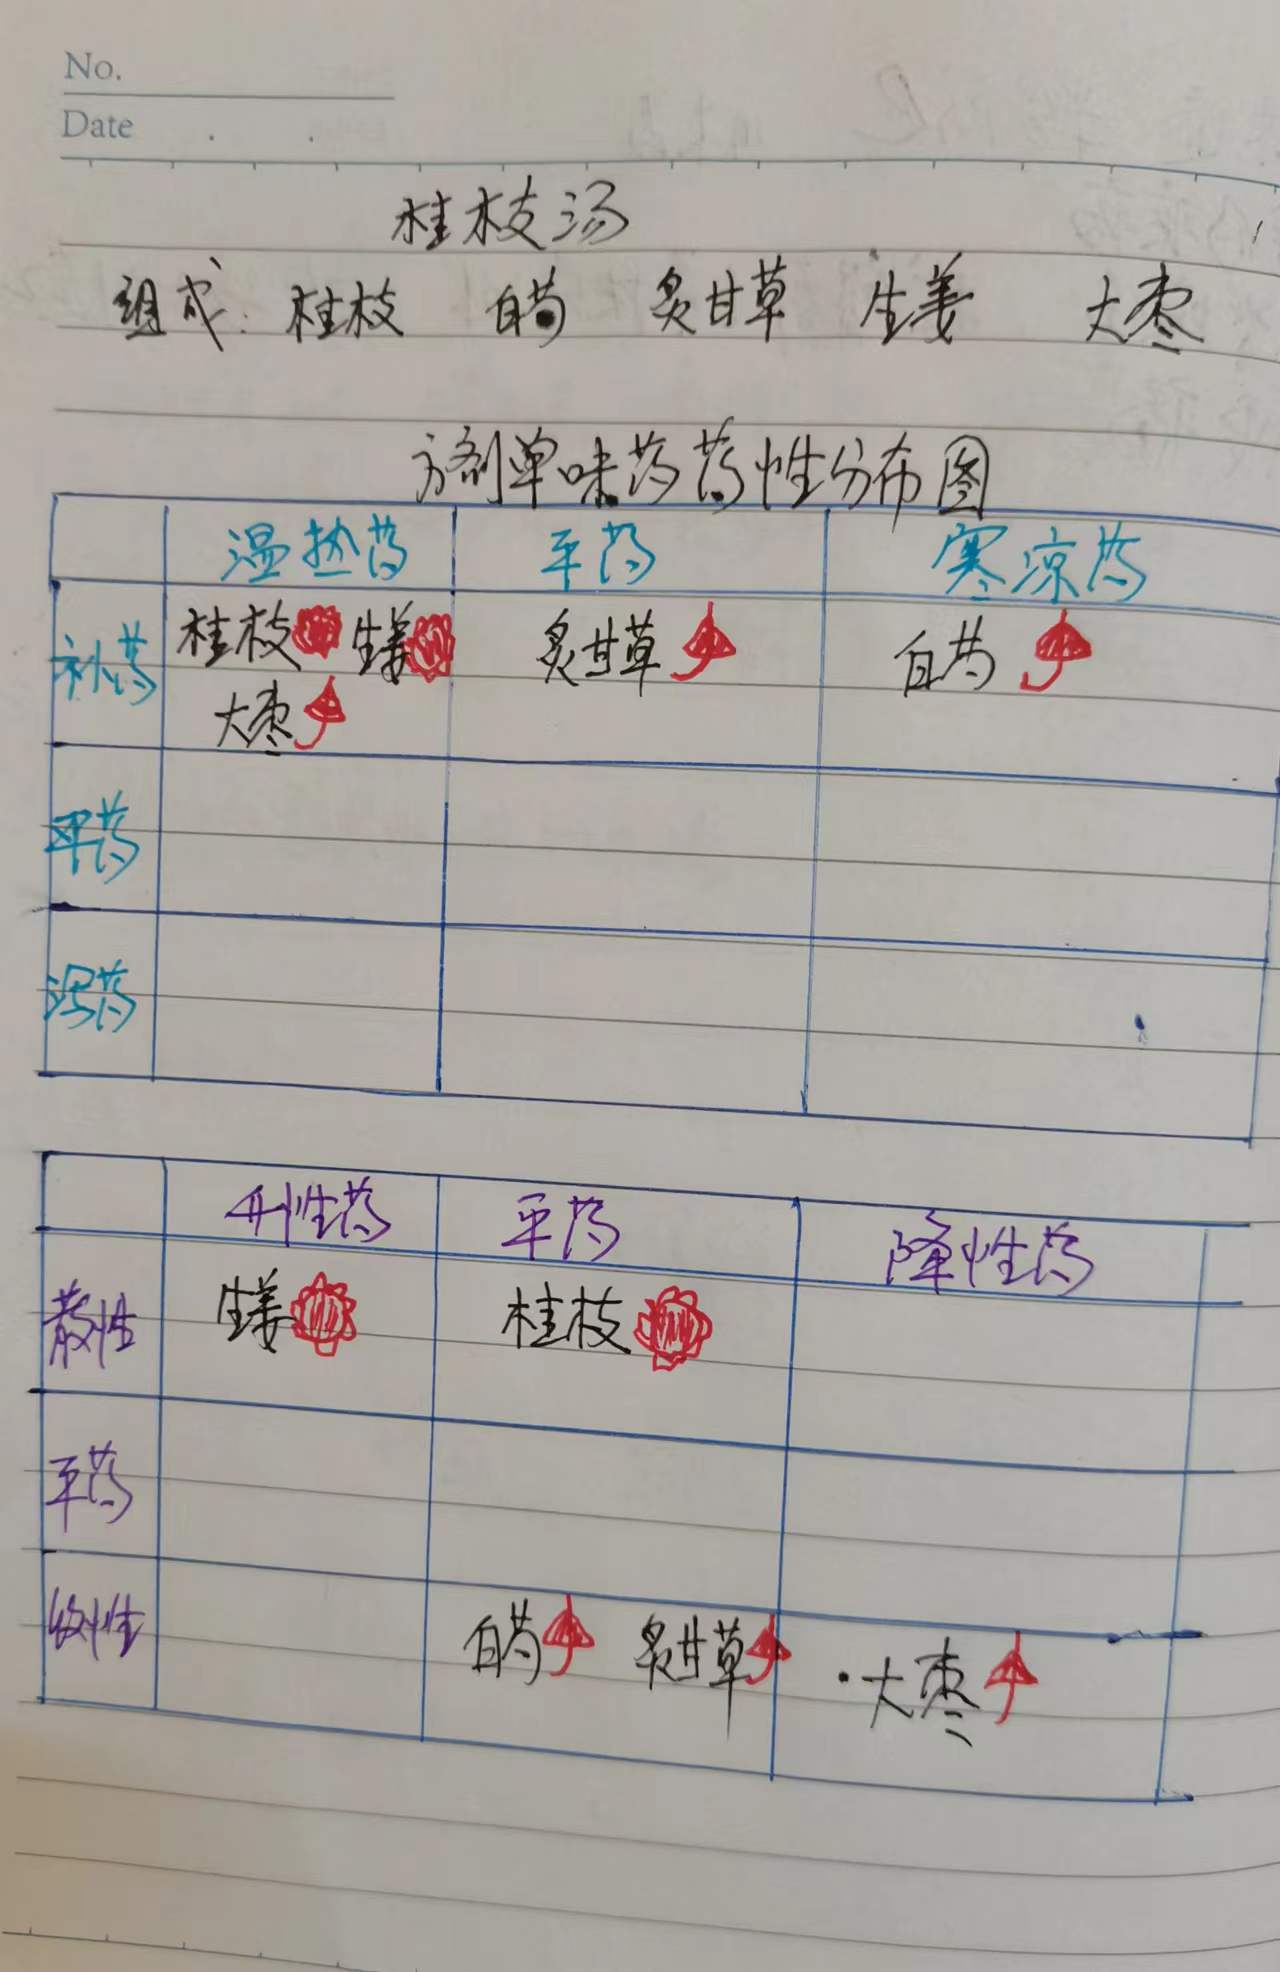 No.
Date
桂枝汤
组成: 桂枝 白芍 炙甘草 生姜 大枣
方剂单味药药性分布图
温热药 平药 寒凉药
补药 桂枝 生姜 炙甘草 白芍
大枣
平药
泻药
升性药 平药 降性药
散性 生姜 桂枝
平药
收性 白芍 炙甘草 大枣